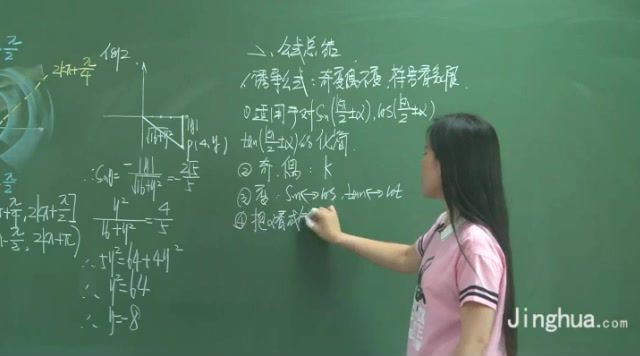 2kπ+π/4
例2.
P(4,y)
√16+y²
|y|
∴sinθ=-|y|/√16+y²=-2√5/5
y²/16+y²=4/5
∴5y²=64+4y²
∴y²=64
∴y=-8
二、公式总结
1)诱导公式:奇变偶不变,符号看象限.
①适用于对sin(kπ/2±α),cos(kπ/2±α)
tan(kπ/2±α)的化简.
②奇、偶:k
③变:sin↔cos,tan↔cot
④把α看成
Jinghua.com